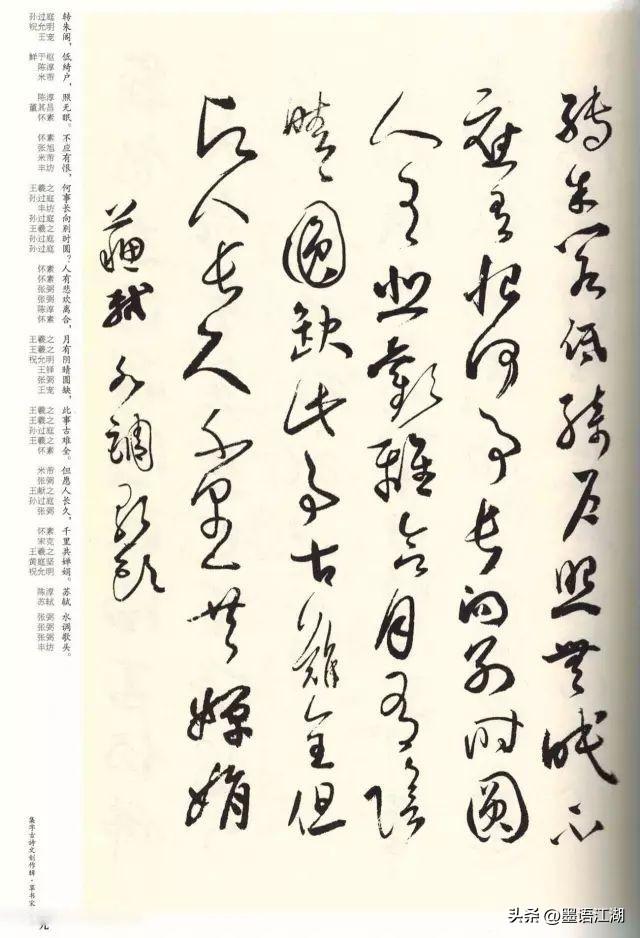 轉朱閣低綺户照無眠不
應有恨何事長向别时圓
人有悲歡離合月有陰
晴圓缺此事古難全但
願人長久千里共嬋娟
蘇軾 水調歌頭
转朱阁，低绮户，照无眠。不应有恨，何事长向别时圆？人有悲欢离合，月有阴晴圆缺，此事古难全。但愿人长久，千里共婵娟。苏轼 水调歌头。
孙过庭
祝允明
王宠
鲜于枢
陈淳
米芾
陈淳
董其昌
怀素
怀素
张旭
米芾
丰坊
王羲之
孙过庭
丰坊
孙过庭
王羲之
孙过庭
孙过庭
怀素
怀素
张弼
张弼
陈淳
怀素
王羲之
王羲之
祝允明
王铎
张弼
王宠
王羲之
王羲之
孙过庭
王羲之
怀素
米芾
张弼
王献之
孙过庭
张弼
怀素
宋克
王羲之
黄庭坚
祝允明
陈淳
苏轼
张弼
张弼
张弼
丰坊
集字古诗文创作辑·草书宋
九
头条 @墨语江湖